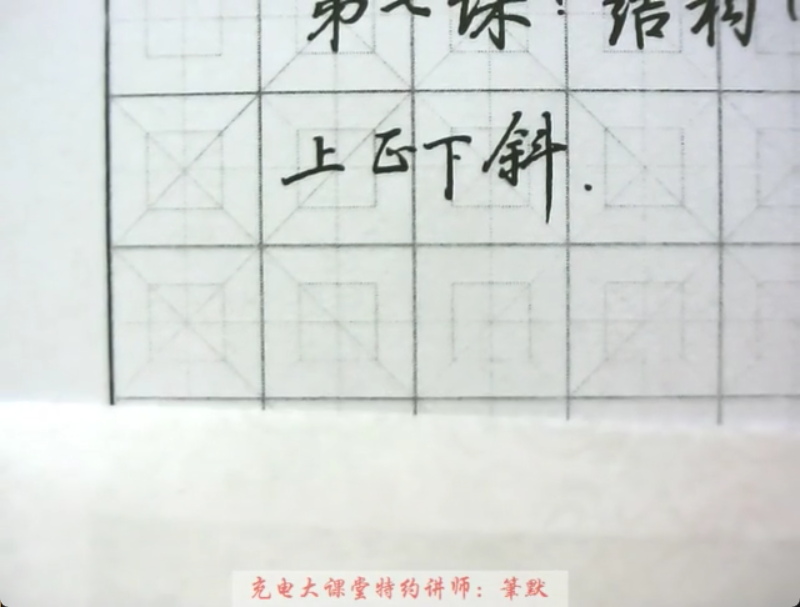 第七课:结构
上正下斜.
充电大课堂特约讲师：筆默